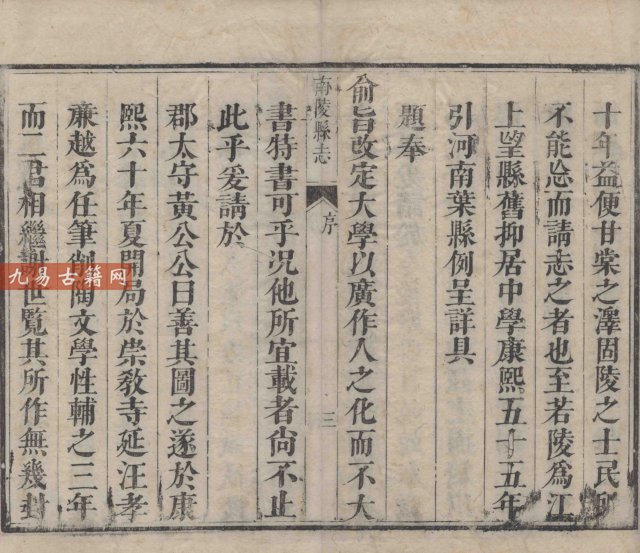 十年益便甘棠之澤固陵之士民所
不能忘而請志之者也至若陵為江
上望縣舊抑居中學康熙五十五年
引河南葉縣例呈詳具
題奉
俞旨改定大學以廣作人之化而不大
南陵縣志 序 三
書特書可乎況他所宜載者尚不止
此乎爰請於
郡太守黃公公曰善其圖之遂於康
熙六十年夏開局於崇教寺延汪孝
廉越為任筆削陶文學性輔之三年
而二君相繼謝世覽其所作無幾
九易古籍网